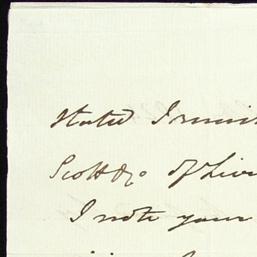 stated I remi
Scott & Co of Liv
I note your